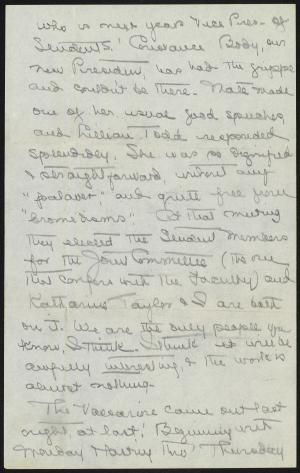 who is next years Vice Pres. of
Students. Constance Body, our
new President, has had the grippe
and couldn't be there. Nell made
one of her usual good speeches,
and Lillian Todd responded
splendidly. She was so dignified
& straightforward, without any
"palaver," and quite free from
"bromidioms." At that meeting
they elected the Student members
for the Joint Committee (the one
that confers with the Faculty) and
Katharine Taylor & I are both
on it. We are the only people you
know, I think. I think it will be
awfully interesting, & the work is
almost nothing.
The Vassarion came out last
night, at last! Beginning with
Monday thro' Thursday